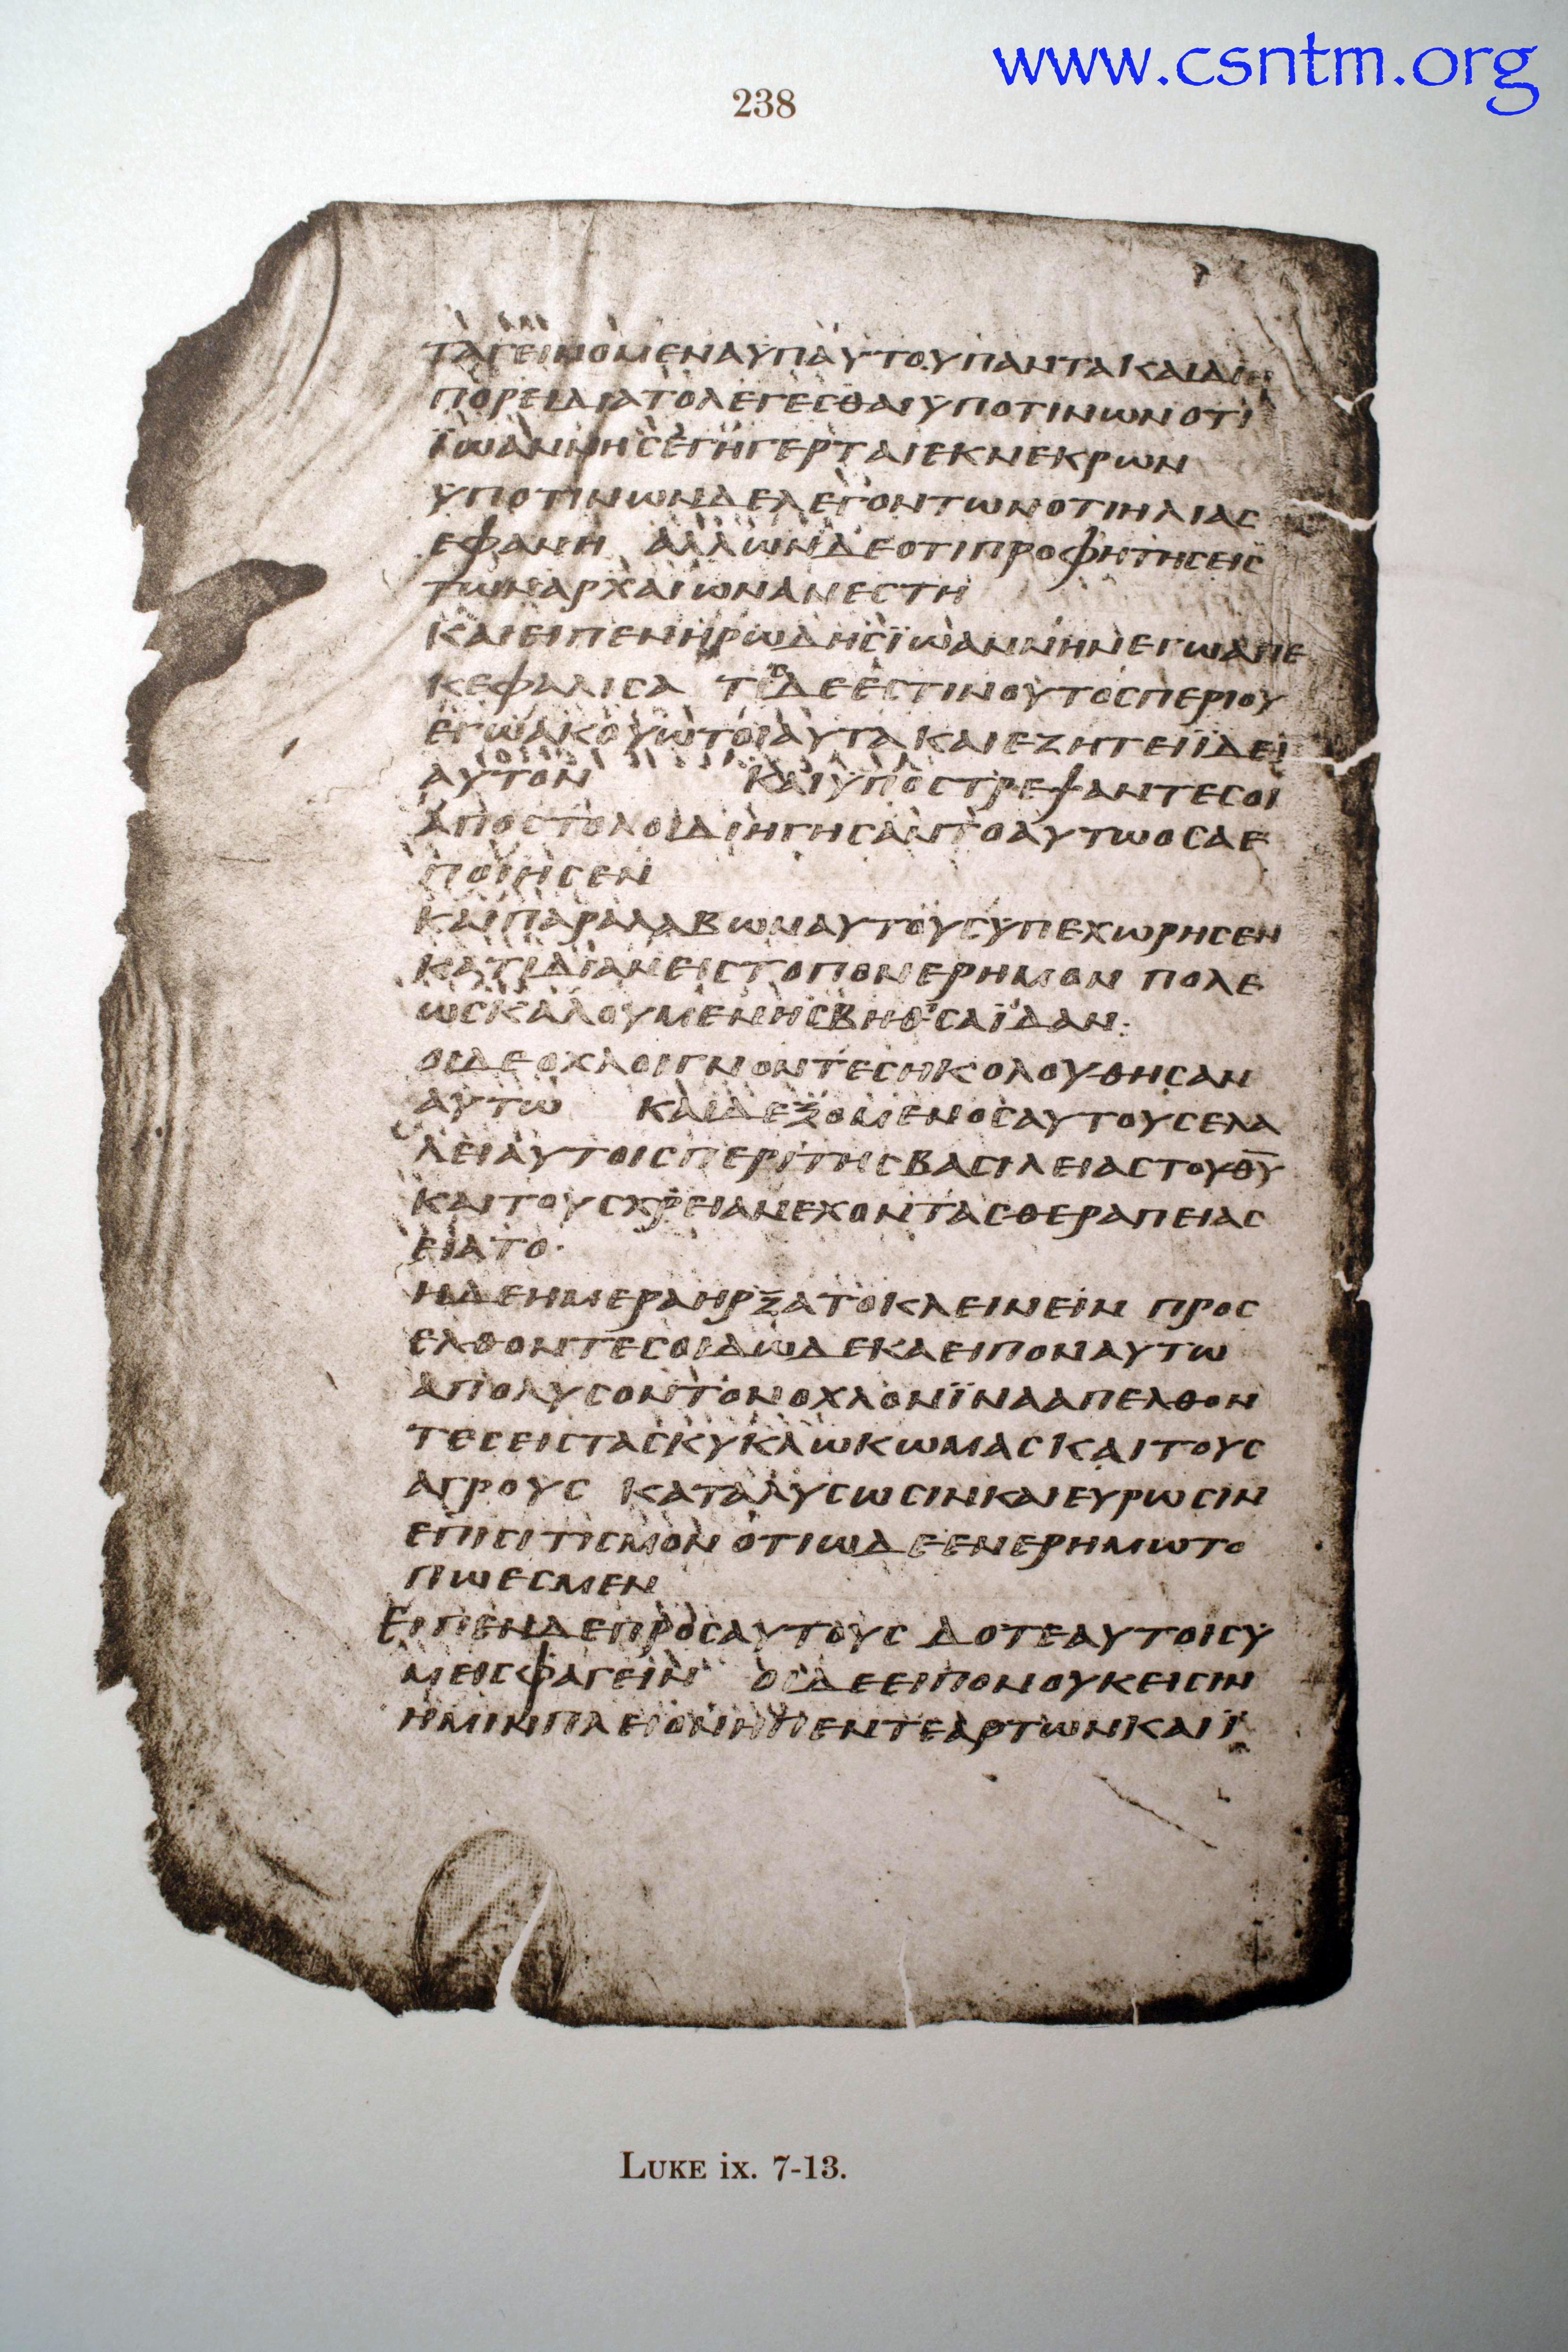 www.csntm.org
238
ΤΑΓΕΙΝΟΜΕΝΑΥΠΑΥΤΟΥΠΑΝΤΑΚΑΙΔΙΗ
ΠΟΡΕΙΔΙΑΤΟΛΕΓΕΣΘΑΙΥΠΟΤΙΝΩΝΟΤΙ
ΪΩΑΝΝΗΣΕΓΗΓΕΡΤΑΙΕΚΝΕΚΡΩΝ
ΥΠΟΤΙΝΩΝΔΕΛΕΓΟΝΤΩΝΟΤΙΗΛΙΑΣ
ΕΦΑΝΗ ΑΛΛΩΝΔΕΟΤΙΠΡΟΦΗΤΗΣΕΙΣ
ΤΩΝΑΡΧΑΙΩΝΑΝΕΣΤΗ
ΚΑΙΕΙΠΕΝΗΡΩΔΗΣΪΩΑΝΝΗΝΕΓΩΑΠΕ
ΚΕΦΑΛΙΣΑ ΤΙΣΔΕΕΣΤΙΝΟΥΤΟΣΠΕΡΙΟΥ
ΕΓΩΑΚΟΥΩΤΟΙΑΥΤΑΚΑΙΕΖΗΤΕΙΪΔΕΙ
ΑΥΤΟΝ ΚΑΙΥΠΟΣΤΡΕΨΑΝΤΕΣΟΙ
ΑΠΟΣΤΟΛΟΙΔΙΗΓΗΣΑΝΤΟΑΥΤΩΟΣΑΕ
ΠΟΙΗΣΕΝ
ΚΑΙΠΑΡΑΛΑΒΩΝΑΥΤΟΥΣΫΠΕΧΩΡΗΣΕΝ
ΚΑΤΙΔΙΑΝΕΙΣΤΟΠΟΝΕΡΗΜΟΝ ΠΟΛΕ
ΩΣΚΑΛΟΥΜΕΝΗΣΒΗΘΣΑΪΔΑΝ:
ΟΙΔΕΟΧΛΟΙΓΝΟΝΤΕΣΗΚΟΛΟΥΘΗΣΑΝ
ΑΥΤΩ ΚΑΙΔΕΞΟΜΕΝΟΣΑΥΤΟΥΣΕΛΑ
ΛΕΙΑΥΤΟΙΣΠΕΡΙΤΗΣΒΑΣΙΛΕΙΑΣΤΟΥΘΥ
ΚΑΙΤΟΥΣΧΡΕΙΑΝΕΧΟΝΤΑΣΘΕΡΑΠΕΙΑΣ
ΕΙΑΤΟ·
ΗΔΕΗΜΕΡΑΗΡΞΑΤΟΚΛΕΙΝΕΙΝ ΠΡΟΣ
ΕΛΘΟΝΤΕΣΟΙΔΩΔΕΚΑΕΙΠΟΝΑΥΤΩ
ΑΠΟΛΥΣΟΝΤΟΝΟΧΛΟΝΪΝΑΑΠΕΛΘΟΝ
ΤΕΣΕΙΣΤΑΣΚΥΚΛΩΚΩΜΑΣΚΑΙΤΟΥΣ
ΑΓΡΟΥΣ ΚΑΤΑΛΥΣΩΣΙΝΚΑΙΕΥΡΩΣΙΝ
ΕΠΙΣΙΤΙΣΜΟΝΟΤΙΩΔΕΕΝΕΡΗΜΩΤΟ
ΠΩΕΣΜΕΝ
ΕΙΠΕΝΔΕΠΡΟΣΑΥΤΟΥΣ ΔΟΤΕΑΥΤΟΙΣΥ
ΜΕΙΣΦΑΓΕΙΝ ΟΙΔΕΕΙΠΟΝΟΥΚΕΙΣΙΝ
ΗΜΙΝΠΛΕΙΟΝΗΠΕΝΤΕΑΡΤΩΝΚΑΙΪ
LUKE ix. 7-13.